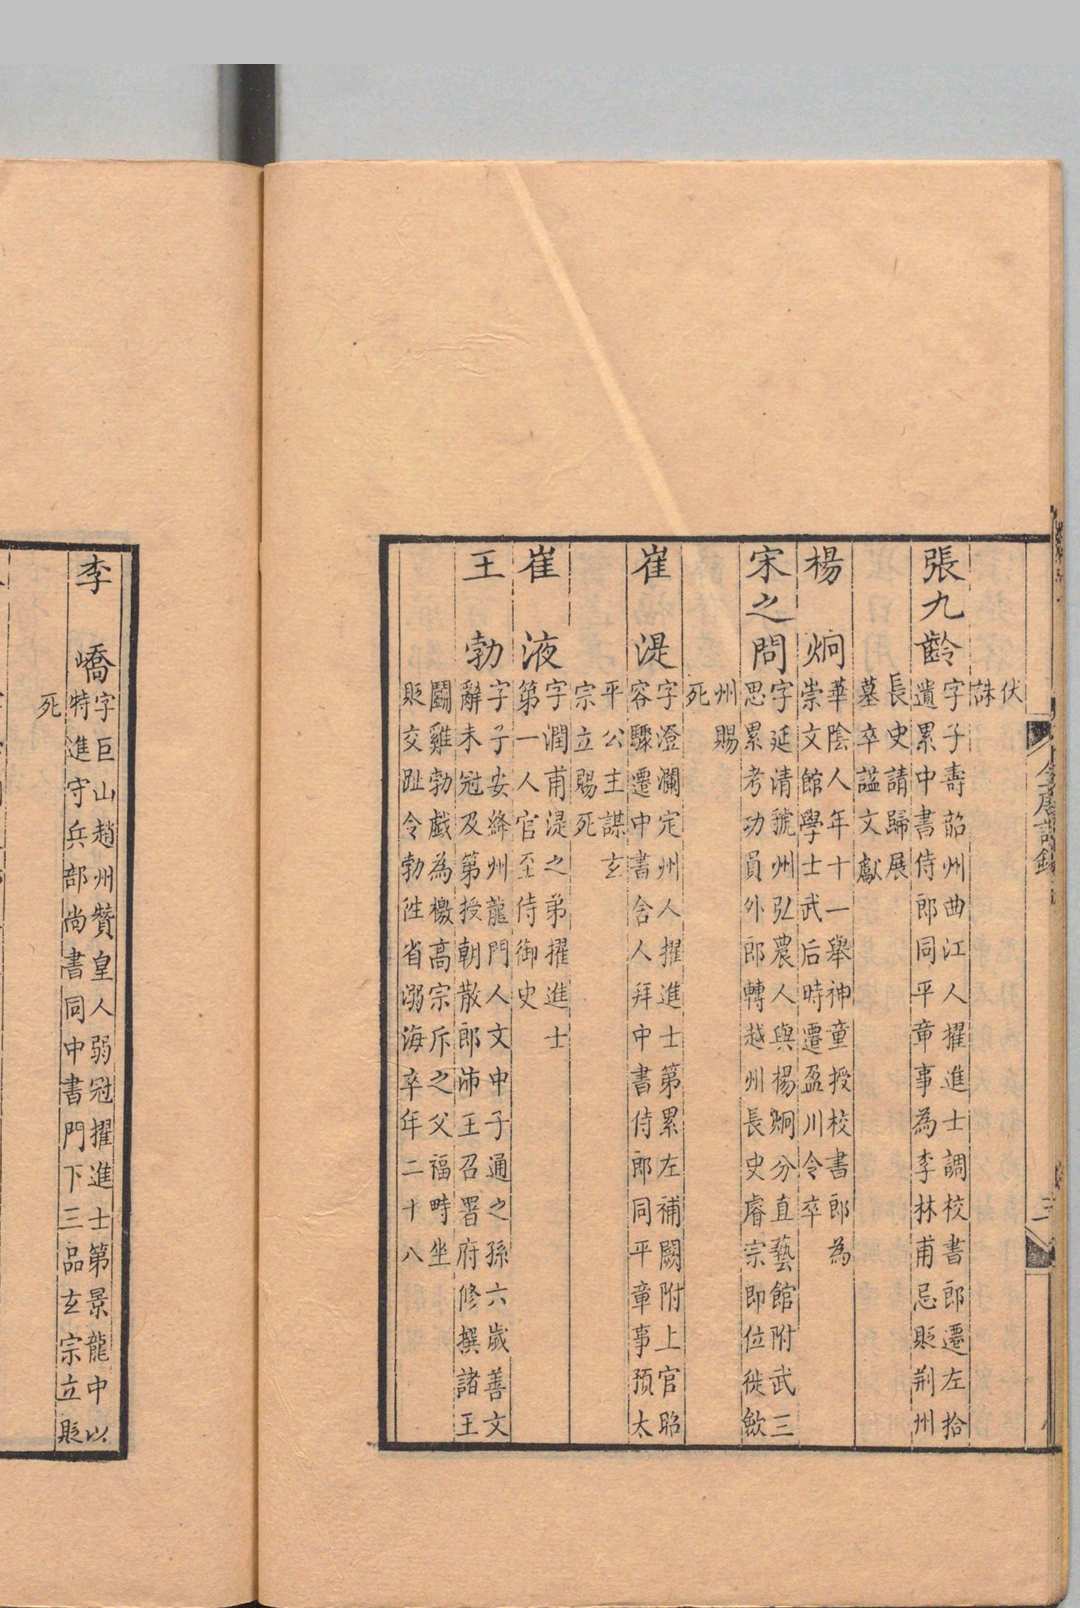 全唐詩錄
三
伏
誅
張九齡
字子壽韶州曲江人擢進士調校書郎遷左拾
遺累中書侍郎同平章事為李林甫忌貶荊州
長史請歸展
墓卒謚文獻
楊炯
華陰人年十一舉神童授校書郎為
崇文館學士武后時遷盈川令卒
宋之問
字延清虢州弘農人與楊炯分直藝館附武三
思累考功員外郎轉越州長史睿宗即位徙欽
州賜
死
崔湜
字澄瀾定州人擢進士第累左補闕附上官昭
容驟遷中書舍人拜中書侍郎同平章事預太
平公主謀玄
宗立賜死
崔液
字潤甫湜之弟擢進士
第一人官至侍御史
王勃
字子安絳州龍門人文中子通之孫六歲善文
辭未冠及第授朝散郎沛王召署府修撰諸王
鬬雞勃戲為檄高宗斥之父福畤坐
貶交趾令勃往省溺海卒年二十八
李嶠
字巨山趙州贊皇人弱冠擢進士第景龍中以
特進守兵部尚書同中書門下三品玄宗立貶
死